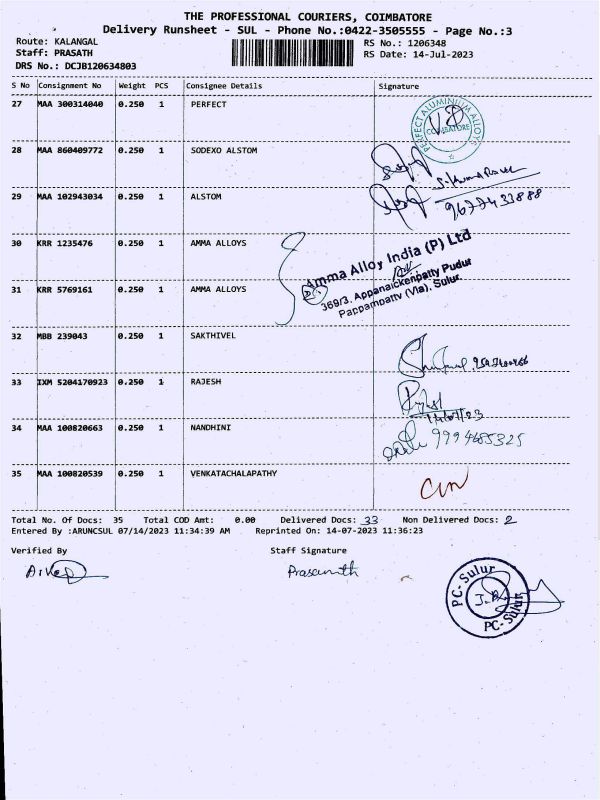 THE PROFESSIONAL COURIERS, COIMBATORE
Delivery Runsheet - SUL - Phone No.:0422-3505555 - Page No.:3
Route: KALANGAL
RS No.: 1206348
Staff: PRASATH
RS Date: 14-Jul-2023
DRS No.: DCJB120634803
S No Consignment No Weight PCS Consignee Details Signature
27 MAA 300314040 0.250 1 PERFECT
PERFECT ALUMINIUM ALLOYS
COIMBATORE
28 MAA 860409772 0.250 1 SODEXO ALSTOM
29 MAA 102943034 0.250 1 ALSTOM
9677433888
30 KRR 1235476 0.250 1 AMMA ALLOYS
Amma Alloy India (P) Ltd
369/3, Appanaickenpatty Pudur
Pappampatty (Via), Sulur.
31 KRR 5769161 0.250 1 AMMA ALLOYS
32 MBB 239043 0.250 1 SAKTHIVEL
33 IXM 5204170923 0.250 1 RAJESH
14/07/23
34 MAA 100820663 0.250 1 NANDHINI
9994685325
35 MAA 100820539 0.250 1 VENKATACHALAPATHY
Total No. Of Docs: 35 Total COD Amt: 0.00 Delivered Docs: 33 Non Delivered Docs: 2
Entered By :ARUNCSUL 07/14/2023 11:34:39 AM Reprinted On: 14-07-2023 11:36:23
Verified By Staff Signature
Prasannth
PC- Sulur
PC- Sulur